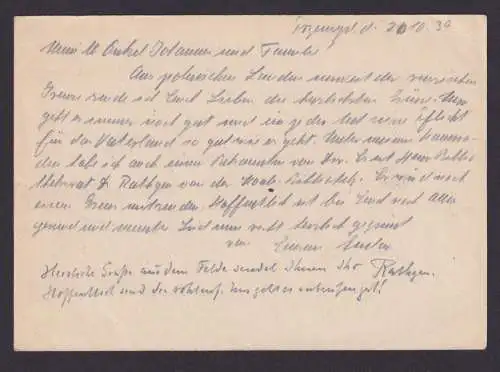 Przemysl d. 21.10.39
Mein ll Onkel Johannes und Familie
Aus polnischen Landen unweit der russischen
Grenze sende ich Euch Lieben die herzlichsten Grüße. Uns
geht es immer noch gut und ein jeder tut seine Pflicht
für das Vaterland so gut wie es geht. Unter meinen Kamera-
den habe ich auch einen Bekannten von Dir. Es ist Herr Biblio
thekrat Rathgen von der Bibliothek. Er wird noch
einen Gruß mitsenden. Hoffentlich ist bei Euch noch alles
gesund und munter. Seid nun recht herzlich gegrüßt
von Eurem
Herzliche Grüße aus dem Felde sendet Ihnen Ihr Rathgen.
Hoffentlich sind Sie wohlauf. Uns geht es gut!